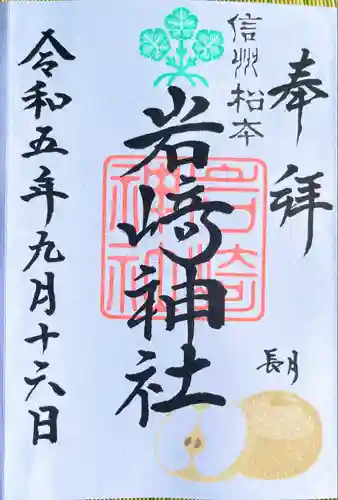 奉拝
信州松本
岩崎神社
岩崎神社
長月
令和五年九月十六日